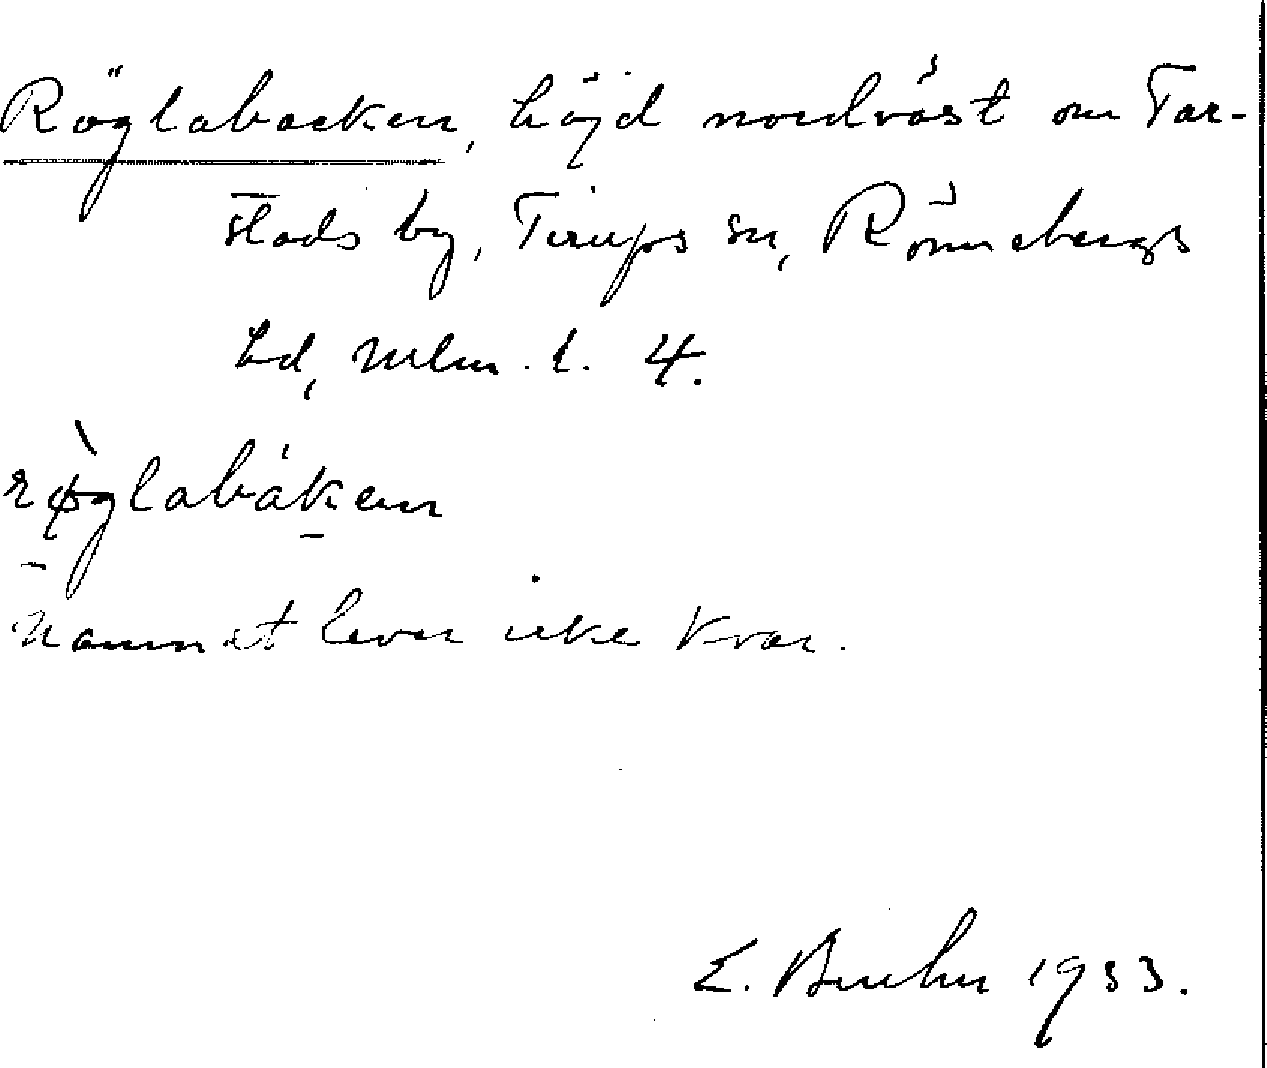 Röglabacken, höjd nordväst om Tar-
stads by, Tirups sn, Rönnebergs
hd, Mlm. l. 4.
røglabåken
Namnet lever icke kvar.
E. Bruhn 1933.